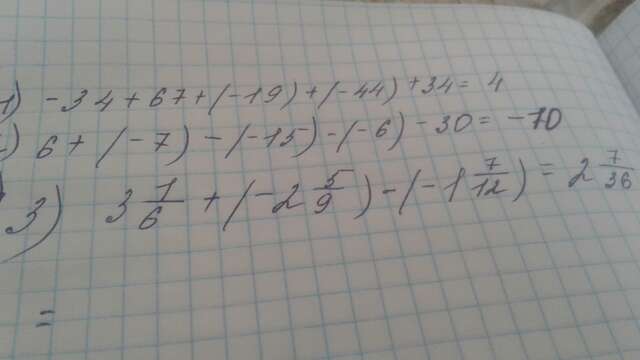 1) -34+67+(-19)+(-44)+34= 4
2) 6+(-7)-(-15)-(-6)-30=-10
3) 3 1/6 +(-2 5/9)-(-1 7/12)= 2 7/36
=